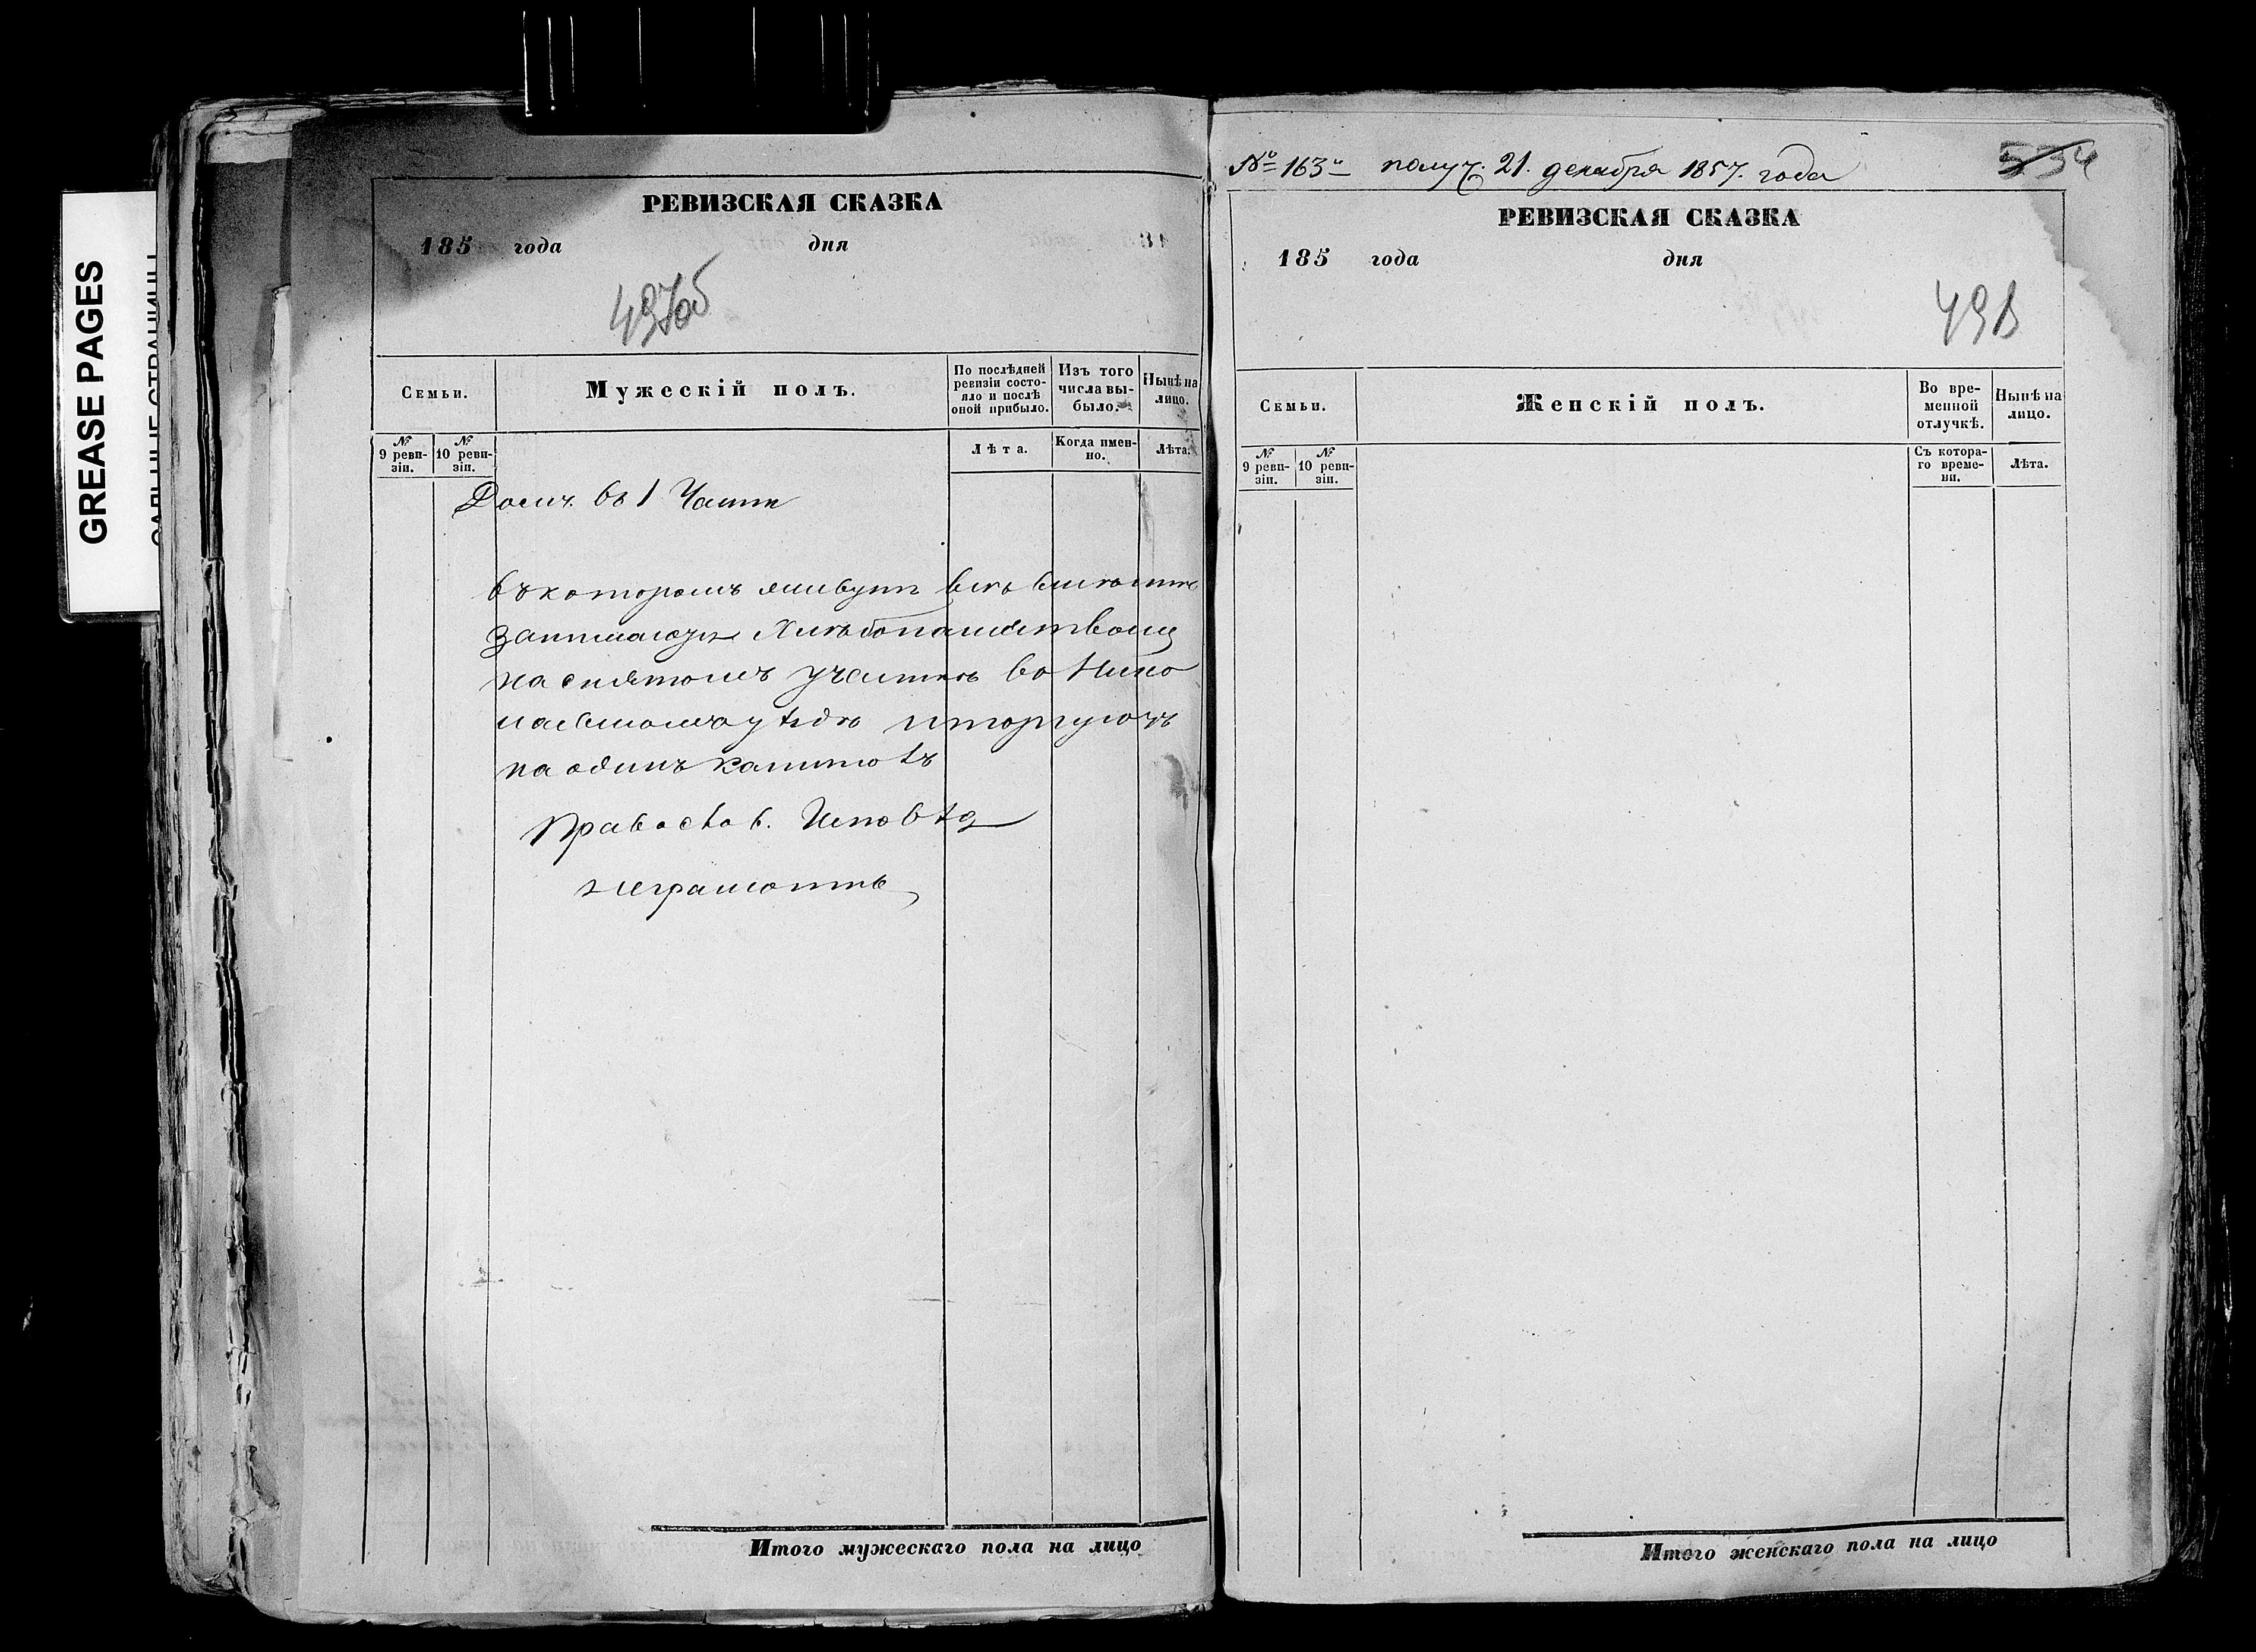 GREASE PAGES
РЕВИЗСКАЯ СКАЗКА
185 года дня
497об
Семьи.
Мужескій полъ.
По послѣдней ревизіи состояло и послѣ оной прибыло.
Изъ того числа выбыло.
Нынѣ на лицо.
№ 9 ревизіи.
№ 10 ревизіи.
Лѣта.
Когда именно.
Лѣта.
Домъ. въ 1 Части
въ которомъ живутъ всѣ вмѣстѣ
занимаюся Хлѣбопашествомъ
на снятомъ участкѣ во Нико
лаевскомъ уѣздѣ и торгуютъ
на одинъ капиталъ
Православ. Исповѣд
неграмотны
Итого мужескаго пола на лицо
№ 163й получ. 21. декабря 1857. года
534
РЕВИЗСКАЯ СКАЗКА
185 года дня
498
Семьи.
Женскій полъ.
Во временной отлучкѣ.
Нынѣ на лицо.
№ 9 ревизіи.
№ 10 ревизіи.
Съ котораго времени.
Лѣта.
Итого женскаго пола на лицо